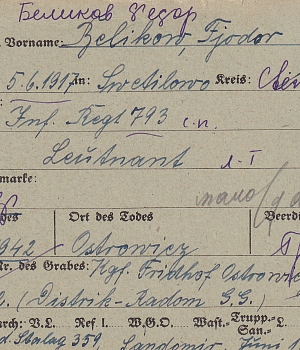 Беликов Федор
Vorname: Belikow, Fjodor
5.6.1917 in: Swetilowo Kreis:
Inf. Regt 793 с.п.
Leutnant л-т
marke:
des Ort des Todes Beerdi
1942 Ostrowicz
Nr. des Grabes: Kgf. Fridhof Ostrowic
(Distrik-Radom G.G.)
rch: V.L. Ref I. W.G.O. Wast.- Trupp.-
San.-
d. Stalag 359 Sandomir, Juni